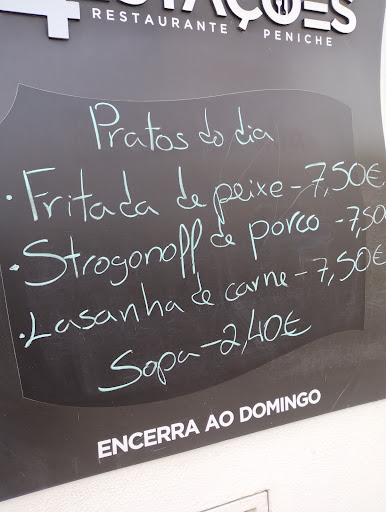 4 ESTAÇÕES
RESTAURANTE PENICHE
Pratos do dia
• Fritada de peixe - 7,50€
• Strogonoff de porco - 7,50
• Lasanha de carne - 7,50€
Sopa - 2,40€
ENCERRA AO DOMINGO